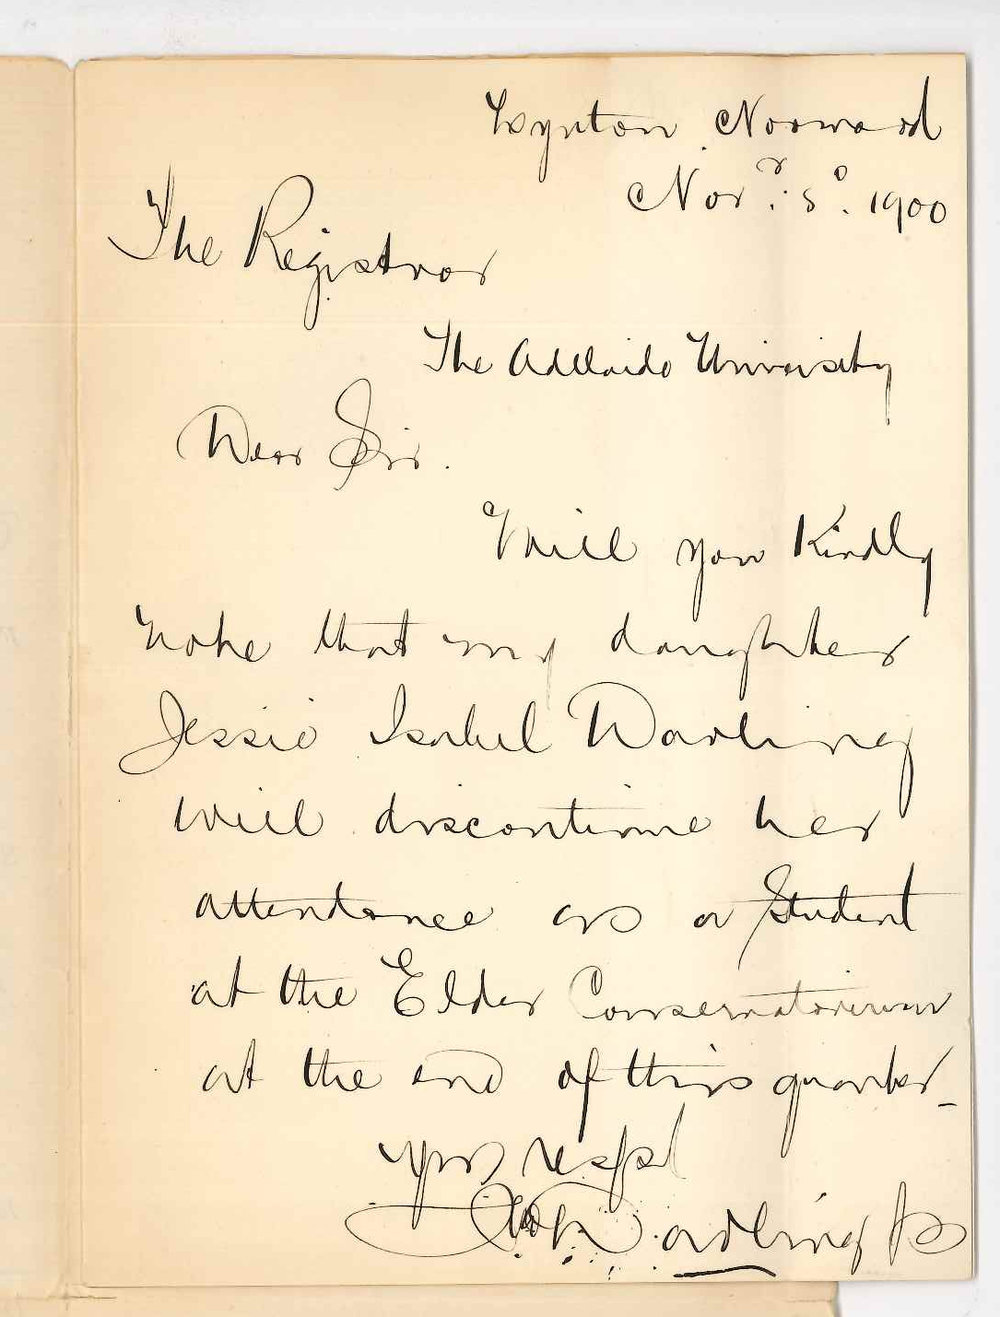 Lynton Norwood
Novr. 5. 1900
The Registrar
The Adelaide University
Dear Sir.
Will you Kindly
note that my daughter
Jessie Isabel Darling
will discontinue her
attendance as a Student
at the Elder Conservatorium
at the end of this quarter_
yrs respl
Darling Jr